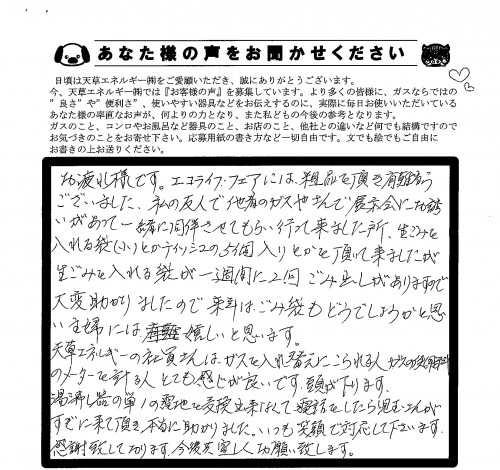 あなた様の声をお聞かせください
日頃は天草エネルギー㈱をご愛顧いただき、誠にありがとうございます。
今、天草エネルギー㈱では『お客様の声』を募集しています。より多くの皆様に、ガスならではの
”良さ”や”便利さ”、使いやすい器具などをお伝えするのに、実際に毎日お使いいただいている
あなた様の率直なお声が、何よりの力となり、また私どもの今後の参考となります。
ガスのこと、コンロやお風呂など器具のこと、お店のこと、他社との違いなど何でも結構ですので
お気づきのことをお寄せ下さい。応募用紙の書き方など一切自由です。文でも絵でもご自由に
お書きの上お送りください。
お疲れ様です。エコライフ・フェアには、粗品を頂き有難う
ございました、私の友人で他者のガスやさんで展示会にお誘
いがあって一緒に同伴させてもらい行って来ました所、生ごみを
入れる袋(小)とかティッシュの5個入りとかを頂いて来ましたが
生ごみを入れる袋が一週間に2回ごみ出しがありますので
大変助かりましたので来年はごみ袋もどうでしょうかと思
い主婦には嬉しいと思います。
天草エネルギーの社員さんはガスを入れ替えにこられる人ガスの使用料
のメーターを計る人とても感じが良いです、頭が下ります。
湯沸し器の単1の電池を交換出来なくて電話をしたら児玉さんが
すぐに来て頂き本当に助かりました。いつも笑顔で対応して下さいます。
感謝致しております。今後共宜しくお願い致します。